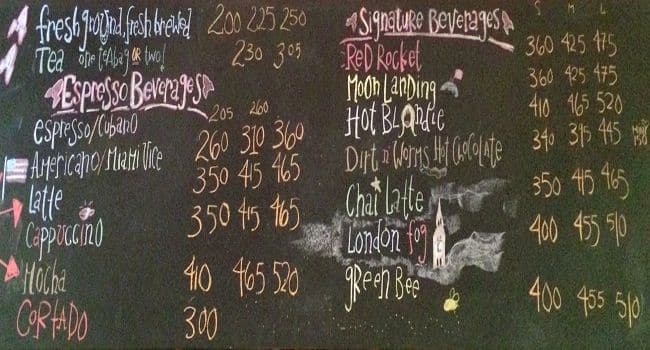 fresh ground, fresh brewed 200 225 250
Tea one teabag or two! 230 305
Espresso Beverages
espresso/Cubano 205 260
Americano/Miami Vice 260 310 360
Latte 350 415 465
Cappuccino 350 415 465
Mocha 410 465 520
CORTADO 300
Signature Beverages S M L
Red Rocket 360 425 475
Moon Landing 360 425 475
Hot Blondie 410 465 520
Dirt n' Worms Hot Chocolate 340 395 445
Chai Latte 350 415 465
London fog 400 455 510
green Bee 400 455 510